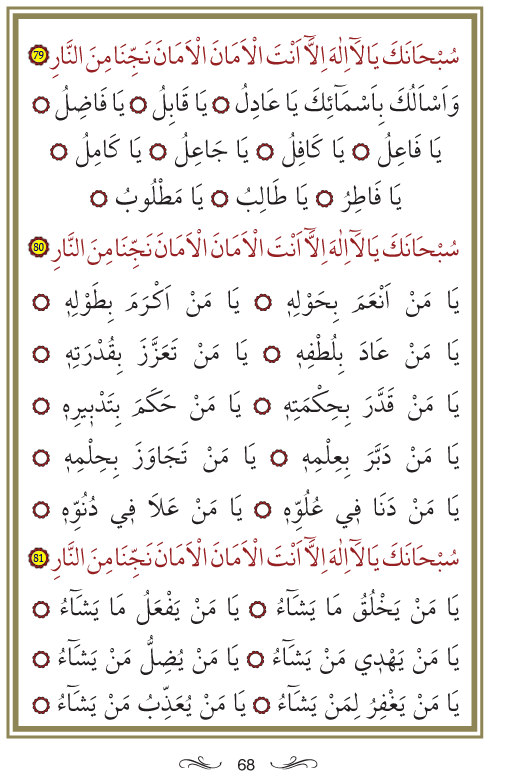 سُبْحَانَكَ يَا لَآ اِلٰهَ اِلَّآ اَنْتَ الْاَمَانَ الْاَمَانَ نَجِّنَا مِنَ النَّارِ 79
وَاَسْاَلُكَ بِاَسْمَآئِكَ يَا عَادِلُ ۞ يَا قَابِلُ ۞ يَا فَاضِلُ ۞
يَا فَاعِلُ ۞ يَا كَافِلُ ۞ يَا جَاعِلُ ۞ يَا كَامِلُ ۞
يَا فَاطِرُ ۞ يَا طَالِبُ ۞ يَا مَطْلُوبُ ۞
سُبْحَانَكَ يَا لَآ اِلٰهَ اِلَّآ اَنْتَ الْاَمَانَ الْاَمَانَ نَجِّنَا مِنَ النَّارِ 80
يَا مَنْ اَنْعَمَ بِحَوْلِهٖ ۞ يَا مَنْ اَكْرَمَ بِطَوْلِهٖ ۞
يَا مَنْ عَادَ بِلُطْفِهٖ ۞ يَا مَنْ تَعَزَّزَ بِقُدْرَتِهٖ ۞
يَا مَنْ قَدَّرَ بِحِكْمَتِهٖ ۞ يَا مَنْ حَكَمَ بِتَدْبٖيرِهٖ ۞
يَا مَنْ دَبَّرَ بِعِلْمِهٖ ۞ يَا مَنْ تَجَاوَزَ بِحِلْمِهٖ ۞
يَا مَنْ دَنَا فٖي عُلُوِّهٖ ۞ يَا مَنْ عَلَا فٖي دُنُوِّهٖ ۞
سُبْحَانَكَ يَا لَآ اِلٰهَ اِلَّآ اَنْتَ الْاَمَانَ الْاَمَانَ نَجِّنَا مِنَ النَّارِ 81
يَا مَنْ يَخْلُقُ مَا يَشَآءُ ۞ يَا مَنْ يَفْعَلُ مَا يَشَآءُ ۞
يَا مَنْ يَهْدٖي مَنْ يَشَآءُ ۞ يَا مَنْ يُضِلُّ مَنْ يَشَآءُ ۞
يَا مَنْ يَغْفِرُ لِمَنْ يَشَآءُ ۞ يَا مَنْ يُعَذِّبُ مَنْ يَشَآءُ ۞
68